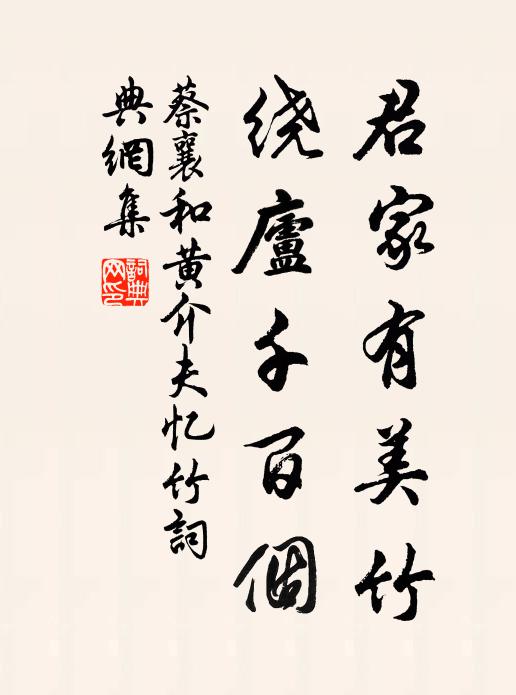 君家有美竹
绕廬千百個
蔡襄和黄介夫忆竹詞
典網集
詞典网印